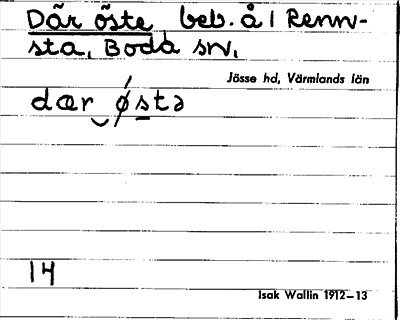 Där öste, beb. å 1 Renn-
sta, Boda sn,
Jösse hd, Värmlands län
dær østə
14
Isak Wallin 1912–13